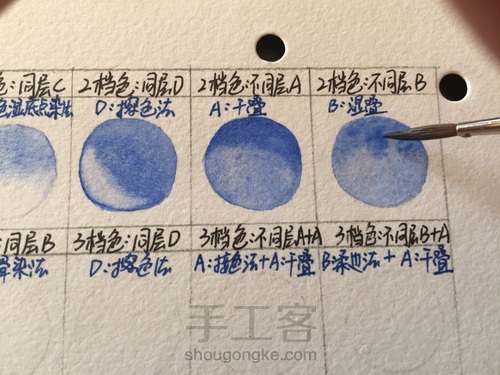 色:同层C 2档色:同层D 2档色:不同层A 2档色:不同层B
色湿底点染法 D:擦色法 A:干叠 B:湿叠
同层B 3档色:同层D 3档色:不同层A+A 3档色:不同层B+A
晕染法 D:擦色法 A:接色法+A:干叠 B:柔边法+A:干叠
手工客
shougongke.com